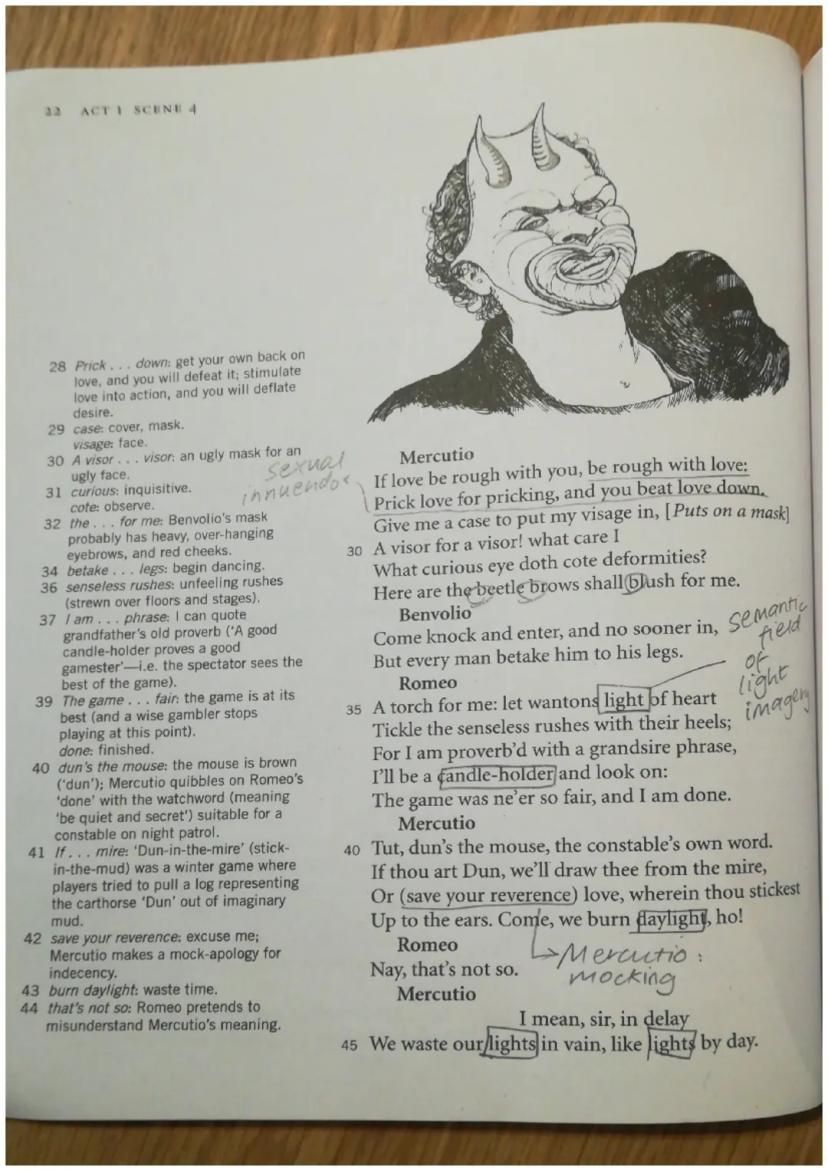 22 ACT 1 SCENE 4
28 Prick . . . down: get your own back on
love, and you will defeat it; stimulate
love into action, and you will deflate
desire.
29 case: cover, mask.
visage: face.
30 A visor . . . visor: an ugly mask for an
ugly face.
31 curious: inquisitive.
cote: observe.
32 the . . . for me: Benvolio's mask
probably has heavy, over-hanging
eyebrows, and red cheeks.
34 betake . . . legs: begin dancing.
36 senseless rushes: unfeeling rushes
(strewn over floors and stages).
37 I am . . . phrase: I can quote
grandfather's old proverb ('A good
candle-holder proves a good
gamester'—i.e. the spectator sees the
best of the game).
39 The game . . . fair: the game is at its
best (and a wise gambler stops
playing at this point).
done: finished.
40 dun's the mouse: the mouse is brown
('dun'); Mercutio quibbles on Romeo's
'done' with the watchword (meaning
'be quiet and secret') suitable for a
constable on night patrol.
41 If . . . mire: 'Dun-in-the-mire' (stick-
in-the-mud) was a winter game where
players tried to pull a log representing
the carthorse 'Dun' out of imaginary
mud.
42 save your reverence: excuse me;
Mercutio makes a mock-apology for
indecency.
43 burn daylight: waste time.
44 that's not so: Romeo pretends to
misunderstand Mercutio's meaning.
sexual
innuendos
Mercutio
If love be rough with you, be rough with love:
Prick love for pricking, and you beat love down.
Give me a case to put my visage in, [Puts on a mask]
30 A visor for a visor! what care I
What curious eye doth cote deformities?
Here are the beetle brows shall blush for me.
Benvolio
Come knock and enter, and no sooner in,
But every man betake him to his legs.
Romeo
35 A torch for me: let wantons light of heart
Tickle the senseless rushes with their heels;
For I am proverb'd with a grandsire phrase,
I'll be a candle-holder and look on:
The game was ne'er so fair, and I am done.
semantic
field
of
light
imagery
Mercutio
40 Tut, dun's the mouse, the constable's own word.
If thou art Dun, we'll draw thee from the mire,
Or (save your reverence) love, wherein thou stickest
Up to the ears. Come, we burn daylight, ho!
Romeo
Nay, that's not so.
Mercutio:
mocking
Mercutio
I mean, sir, in delay
45 We waste our lights in vain, like lights by day.